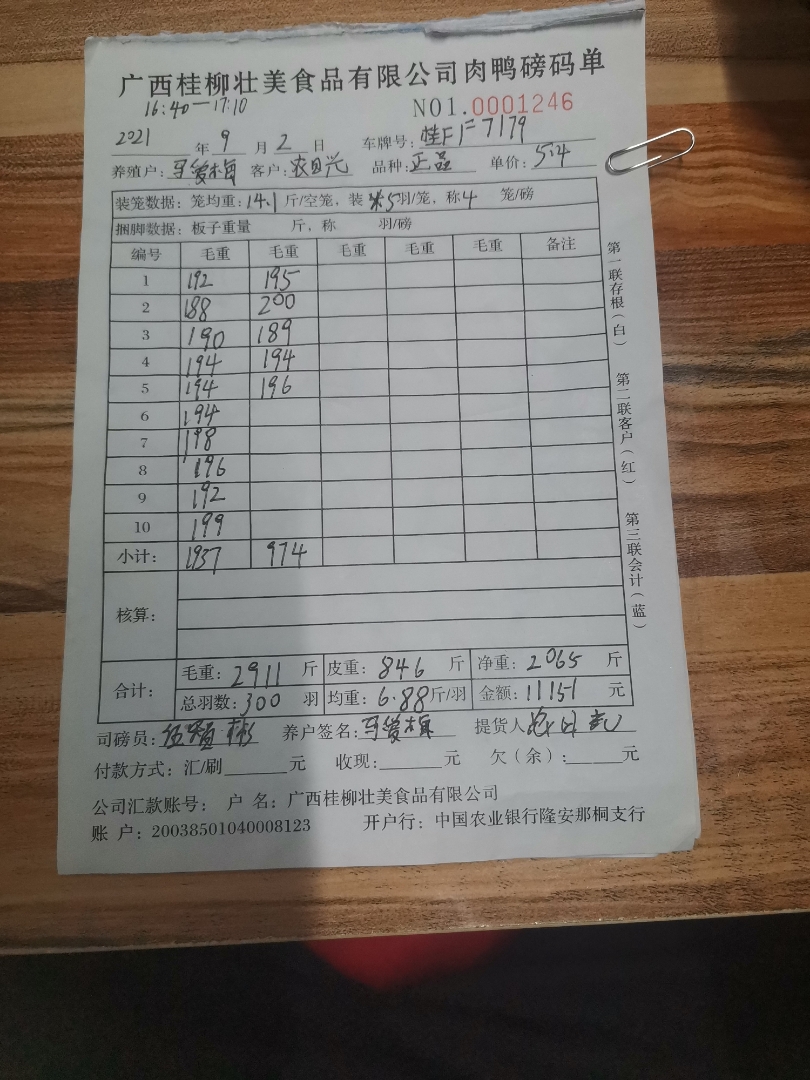 广西桂柳壮美食品有限公司肉鸭磅码单
16:40—17:10
NO1.0001246
2021 年 9 月 2 日 车牌号: 桂F 7179
养殖户: 客户: 农日兴 品种: 正品 单价: 5.4
装笼数据: 笼均重: 14.1 斤/空笼, 装 5羽/笼, 称4 笼/磅
捆脚数据: 板子重量 斤, 称 羽/磅
编号 毛重 毛重 毛重 毛重 毛重 备注
1 192 195
2 188 200
3 190 189
4 194 194
5 194 196
6 194
7 198
8 196
9 192
10 199
小计: 1937 974
核算:
合计: 毛重: 2911 斤 皮重: 846 斤 净重: 2065 斤
总羽数: 300 羽 均重: 6.88 斤/羽 金额: 11151 元
司磅员: 养户签名: 提货人
付款方式: 汇/刷 元 收现: 元 欠(余): 元
公司汇款账号: 户 名: 广西桂柳壮美食品有限公司
账 户: 20038501040008123 开户行: 中国农业银行隆安那桐支行
第一联存根(白)
第二联客户(红)
第三联会计(蓝)